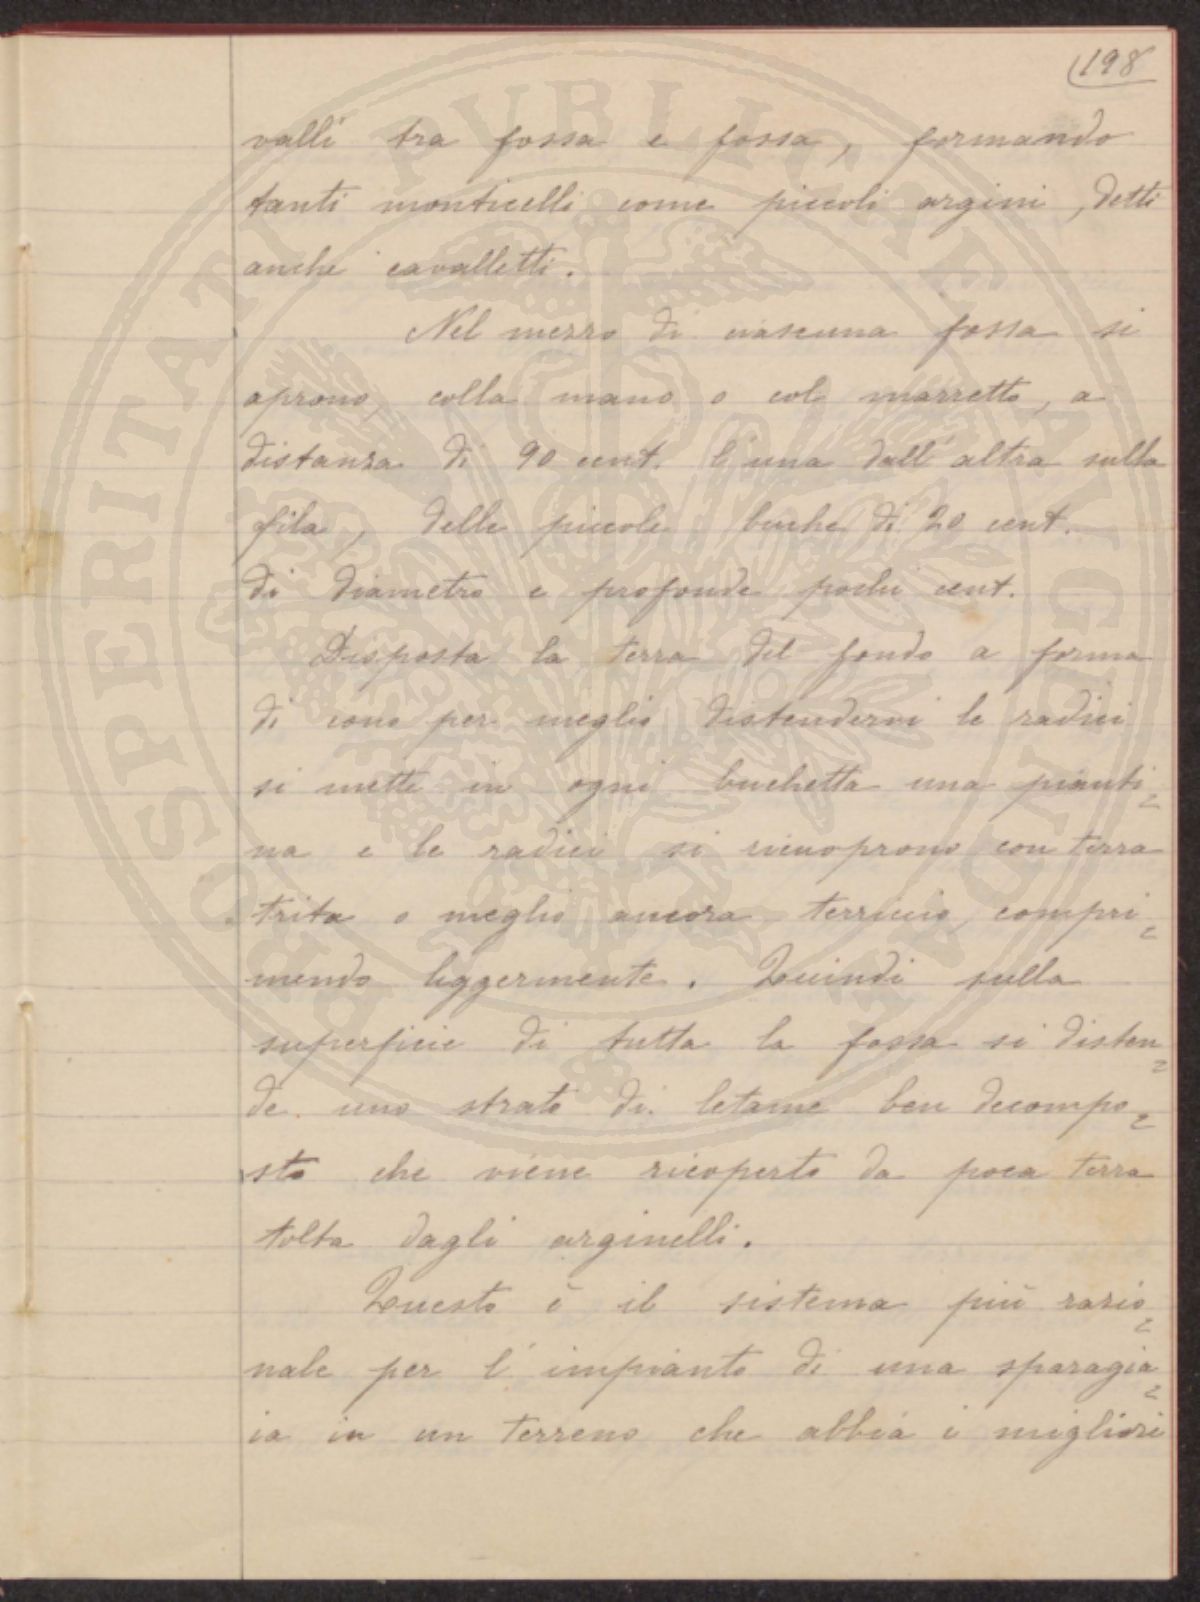 198
valli tra fossa e fossa, formando
tanti monticelli come piccoli argini, detti
anche cavalletti.
Nel mezzo di ciascuna fossa si
aprono, colla mano o col marretto, a
distanza di 90 cent. l'una dall'altra sulla
fila, delle piccole buche di 20 cent.
di diametro e profonde pochi cent.
Disposta la terra del fondo a forma
di cono per meglio distendervi le radici
si mette in ogni buchetta una pianti=
na e le radici si ricuoprono con terra
trita o meglio ancora terriccio, compri=
mendo leggermente. Quindi sulla
superficie di tutta la fossa si disten=
de uno strato di letame ben decompo=
sto che viene ricoperto da poca terra
tolta dagli arginelli.
Questo è il sistema più razio=
nale per l'impianto di una sparagia=
ia in un terreno che abbia i migliori
PROSPERITATI PUBLICAE AUGENDAE